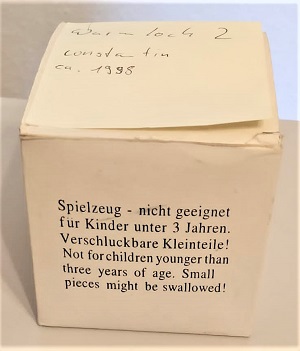 Warmloch 2
Constantin
ca. 1998
Spielzeug - nicht geeignet
für Kinder unter 3 Jahren.
Verschluckbare Kleinteile!
Not for children younger than
three years of age. Small
pieces might be swallowed!